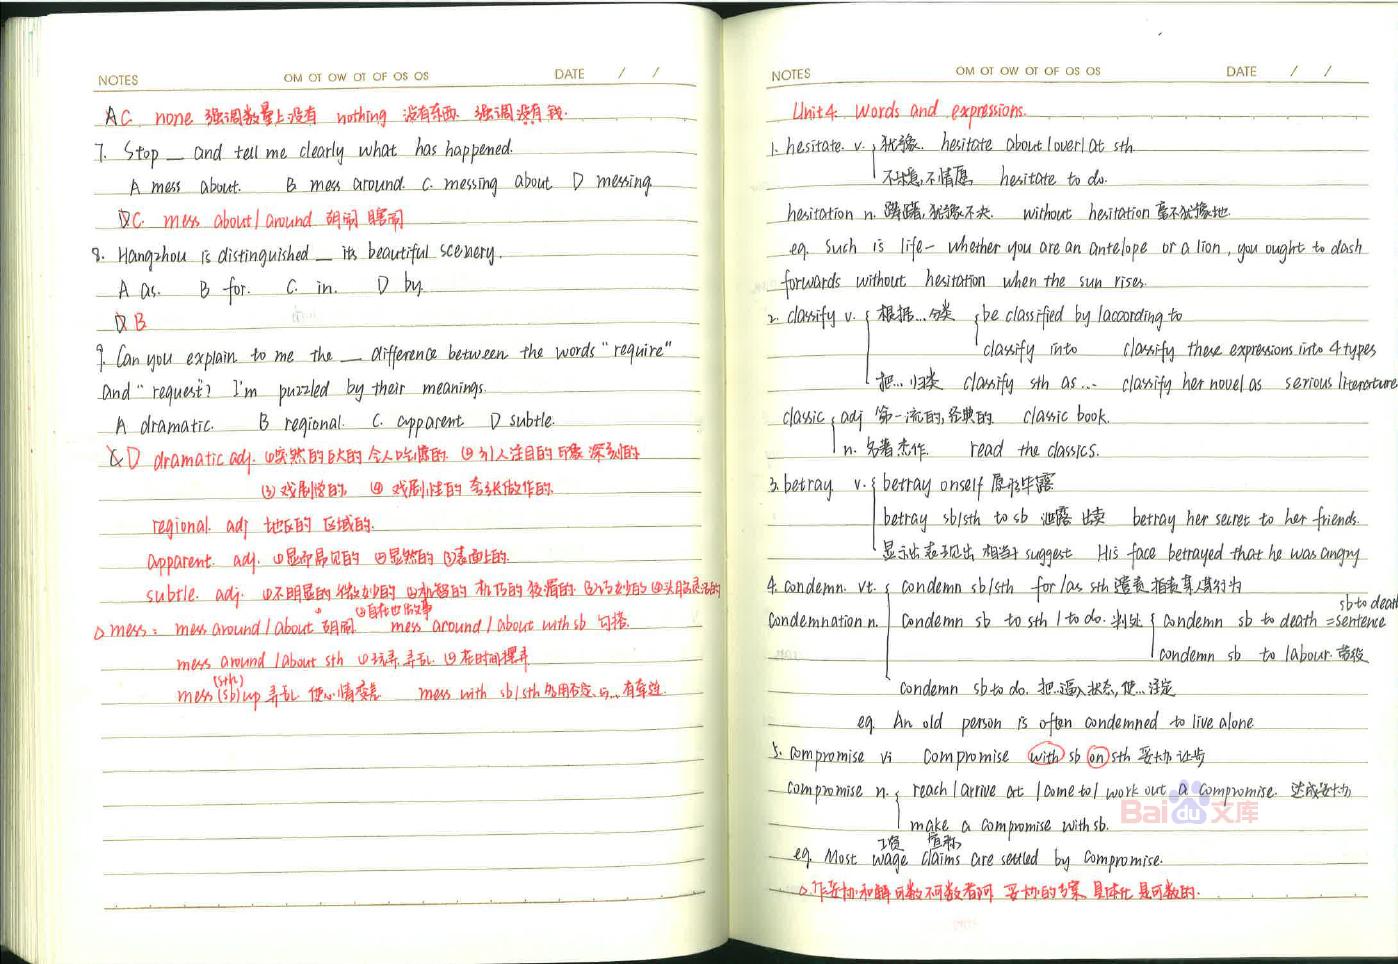 NOTES OM OT OW OT OF OS OS DATE / /
AC none 强调数量上没有 nothing 没有东西. 强调没有钱.
7. Stop __ and tell me clearly what has happened.
A mess about. B mess around. C. messing about D messing.
DC. mess about/around 胡闹 瞎闹
8. Hangzhou is distinguished __ its beautiful scenery.
A as. B for. C. in. D by.
B
9. Can you explain to me the __ difference between the words "require"
and "request"? I'm puzzled by their meanings.
A dramatic. B regional. C. apparent D subtle.
D dramatic adj. ①突然的巨大的 令人吃惊的. ②引人注目的 印象深刻的
③戏剧般的, ④ 戏剧性的 夸张做作的.
regional. adj 地区的 区域的.
apparent. adj. ①显而易见的 ②显然的 ③表面上的.
subtle. adj. ①不明显的 微妙的 ②机智的 机巧的 狡猾的. ③巧妙的 ④头脑灵活的
mess: mess around/about 胡闹. mess around/about with sb 勾搭.
mess around/about sth ①玩弄 弄乱 ②花时间摆弄
mess (sb) (sth) up 弄乱 使心情委差 mess with sb/sth 多用否定 与...有牵连.
NOTES OM OT OW OT OF OS OS DATE / /
Unit4: Words and expressions.
1. hesitate. v. 犹豫. hesitate about/over/at sth.
不愿,不情愿 hesitate to do.
hesitation n. 踌躇,犹豫不决. without hesitation 毫不犹豫地.
eg. Such is life— whether you are an antelope or a lion, you ought to dash
forwards without hesitation when the sun rises.
2. classify v. 根据...分类 be classified by/according to
classify into classify these expressions into 4 types
把...归类 classify sth as... classify her novel as serious literature
classic adj 第一流的,经典的 classic book.
n. 名著杰作. read the classics.
3. betray v. betray onself 原形毕露
betray sb/sth to sb 泄露 出卖 betray her secret to her friends.
显示出 表现出 相当于 suggest His face betrayed that he was angry
4. condemn. vt. condemn sb/sth for/as sth 谴责 指责某人某行为
sb to death
condemnation n. condemn sb to sth/to do. 判处 condemn sb to death = sentence
condemn sb to labour. 苦役
condemn sb to do. 把...逼入状态,使...注定
eg. An old person is often condemned to live alone
5. compromise vi compromise with sb on sth 妥协 让步
compromise n. reach/arrive at/come to/work out a compromise. 达成妥协
make a compromise with sb.
工资
eg. Most wage claims are settled by compromise.
作妥协和解可数不可数 妥协的方案 具体化 是可数的.
Baidu文库